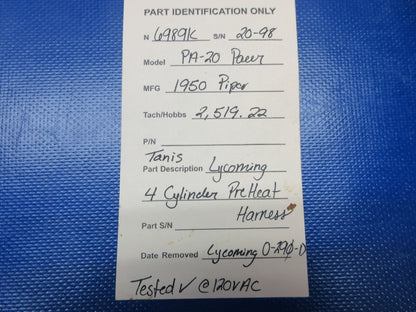 PART IDENTIFICATION ONLY
N 6989K S/N 20-98
Model PA-20 Pacer
MFG 1950 Piper
Tach/Hobbs 2,519.22
P/N
Tanis
Part Description Lycoming
4 Cylinder PreHeat
Harness
Part S/N
Date Removed Lycoming O-290-D
Tested ✓ @120VAC